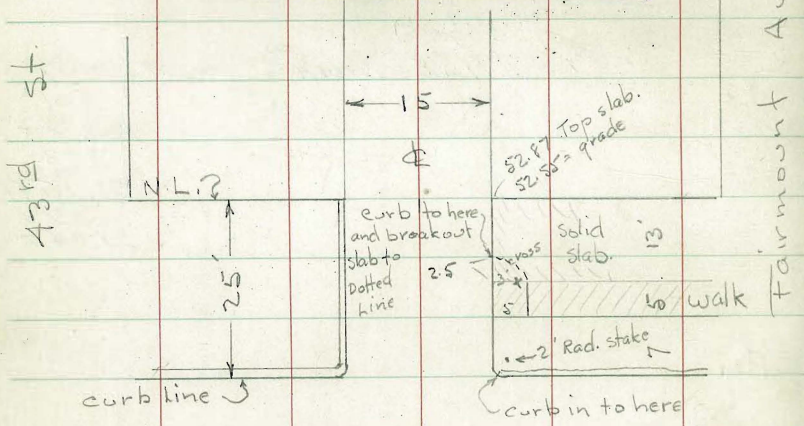 43rd St.
15
℄
52.87 Top slab.
52.55 = grade
N.L.?
25'
curb to here
and breakout
slab to
Dotted
Line
2.5
3
5
solid
slab.
13'
5
walk
Fairmount
2' Rad. stake
curb line
curb in to here